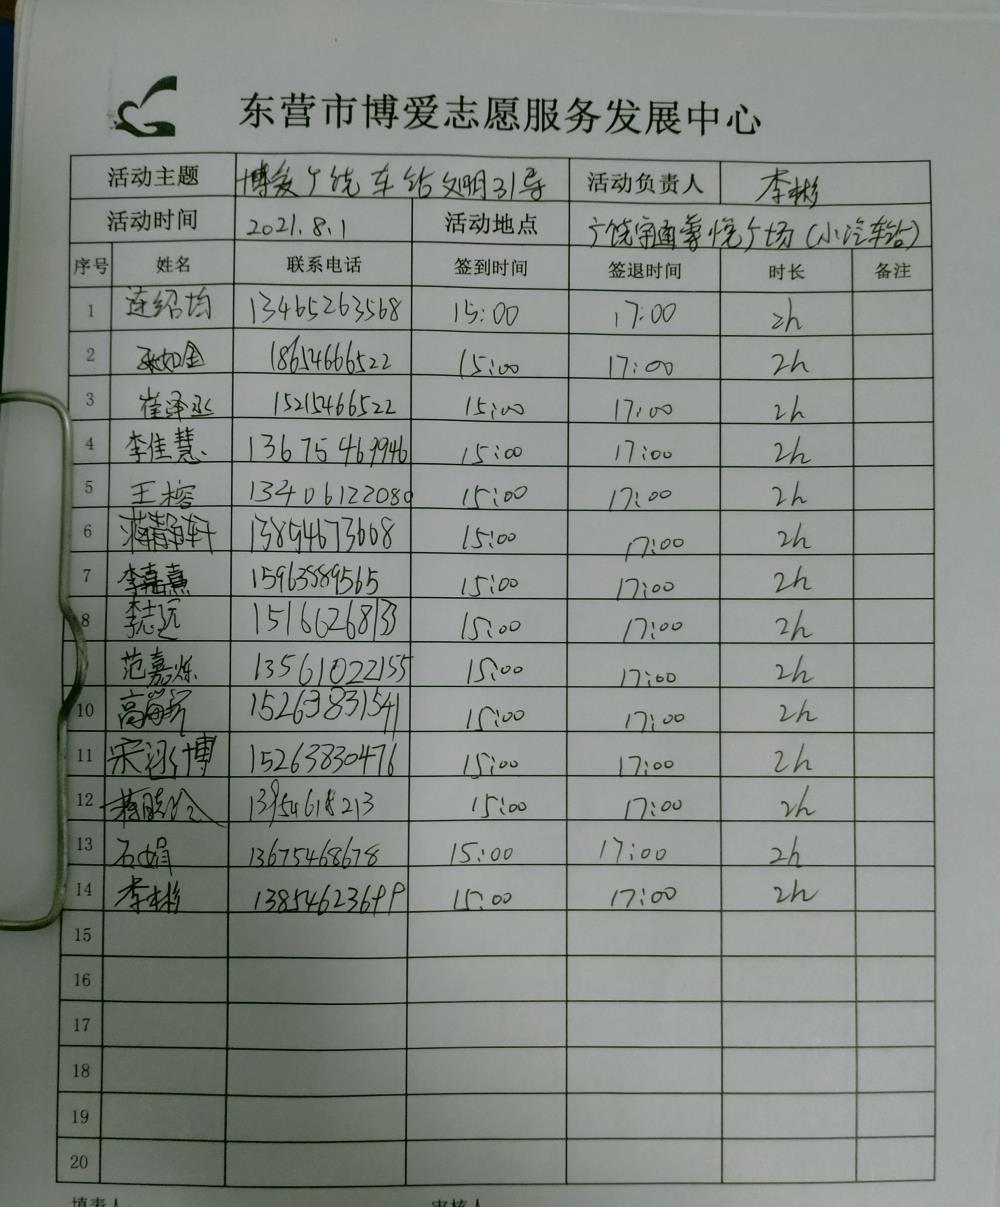 东营市博爱志愿服务发展中心
活动主题 博爱广饶车站文明引导 活动负责人 李彬
活动时间 2021.8.1 活动地点 广饶宇通 悦广场(小汽车站)
序号 姓名 联系电话 签到时间 签退时间 时长 备注
1 连绍均 13465263568 15:00 17:00 2h
2 18654666522 15:00 17:00 2h
3 崔泽丞 15215466522 15:00 17:00 2h
4 李佳慧 13675469946 15:00 17:00 2h
5 王榕 13406122080 15:00 17:00 2h
6 蒋静轩 13894673608 15:00 17:00 2h
7 李嘉熹 15963589565 15:00 17:00 2h
8 李志远 15166268133 15:00 17:00 2h
范嘉烁 13561022155 15:00 17:00 2h
10 高 15263831541 15:00 17:00 2h
11 宋泓博 15263830476 15:00 17:00 2h
12 13954618213 15:00 17:00 2h
13 石娟 13675468678 15:00 17:00 2h
14 李彬 13854623699 15:00 17:00 2h
15
16
17
18
19
20
填表人 审核人